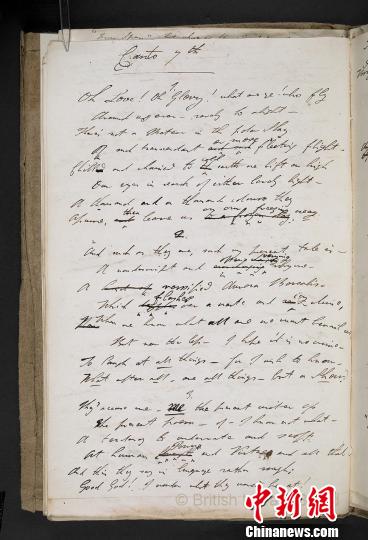 Canto 7th
1
Oh Love! Oh Glory! what are ye! who fly
Around us ever – rarely to alight –
There's not a Meteor in the polar Sky
Of such transcendent and more fleeting flight –
Chill and chained to cold earth we lift on high
Our eyes in search of either lovely light –
A thousand and a thousand colours they
Assume, then leave us on our freezing way
2.
And such as they are, such my present tale is –
A nondescript and ever varying rhyme –
A versified Aurora Borealis –
Which flashes o'er a waste and icy clime,
When we know what all are we must bewail us,
But I hope it is no crime –
To laugh at all things – for I wish to know –
What after all, are all things – but a Show?
3.
They accuse me – me – the present writer of
The present poem – of – I know not what –
A tendency to underrate and scoff
At human power and Virtue and all that;
And this they say in language rather rough;
Good God! I wonder what they would be at!
© British
中新网
Chinanews.com